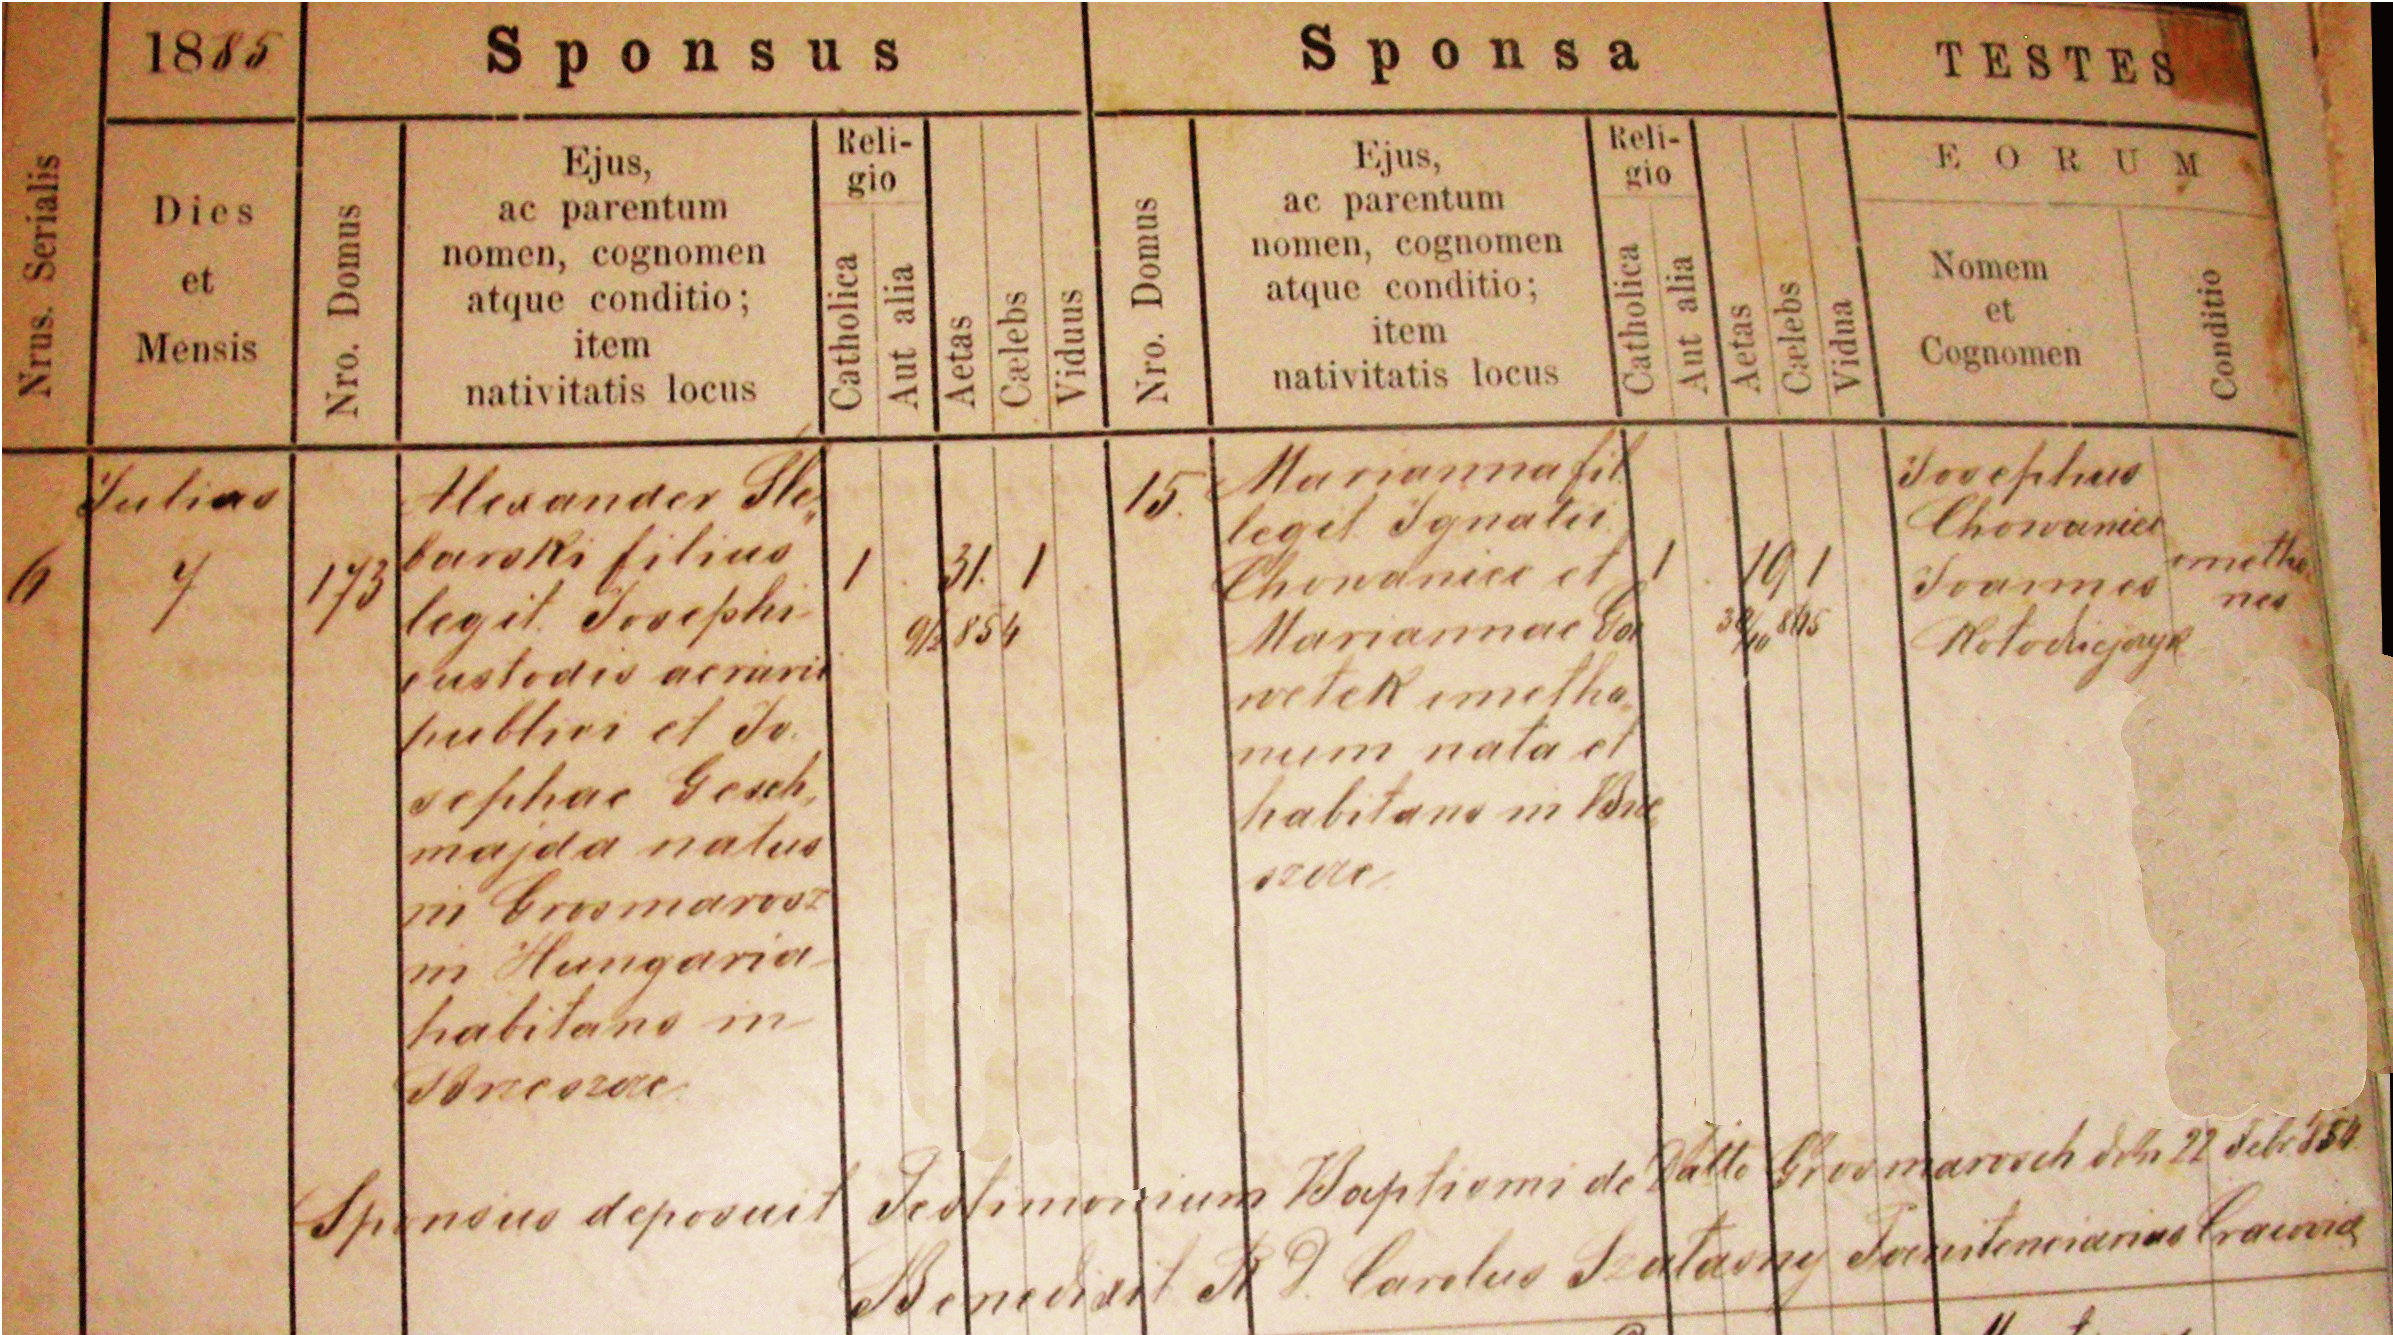 1885
Sponsus
Sponsa
TESTES
Nrus. Serialis
Dies
et
Mensis
Nro. Domus
Ejus,
ac parentum
nomen, cognomen
atque conditio;
item
nativitatis locus
Reli-
gio
Catholica
Aut alia
Aetas
Cælebs
Viduus
Nro. Domus
Ejus,
ac parentum
nomen, cognomen
atque conditio;
item
nativitatis locus
Reli-
gio
Catholica
Aut alia
Aetas
Cælebs
Vidua
EORUM
Nomem
et
Cognomen
Conditio
6
Julius
7
173
Alexander Sle„
barski filius
legit. Josephi
custodis aerarii
publici et Jo.
sephae Gesch„
majda natus
in Grosmarosz
in Hungaria
habitans in
Brzeszcze.
1
31.
1
9/2 854
15.
Marianna fil.
legit Ignatii
Chowaniec et
Mariannae Ga
wetek cmetho„
num nata et
habitans in Brze„
szcze.
1
19
1
30/10 865
Josephus
Chowaniec
Joannes
Kołodziejczyk
cmetho„
nes
Sponsus deposuit Testimonium Baptismi de Grosmarosch dtto 22 Febr 854.
Benedixit R D. Carolus Szatasny Poenitenciarius Cracovia